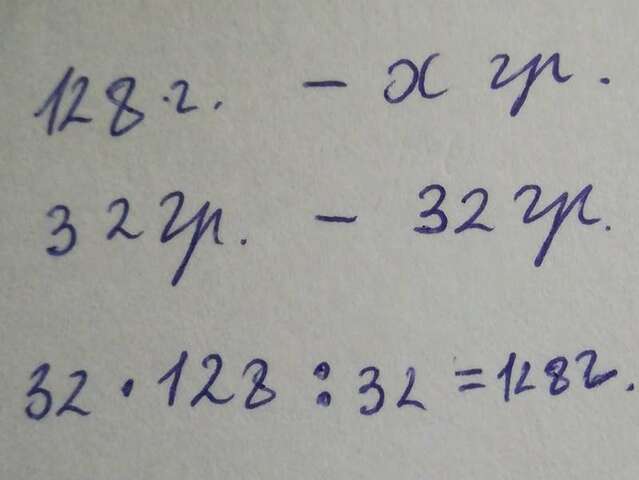 128 г. - х гр.
32 гр. - 32 гр.
32 · 128 : 32 = 128 г.